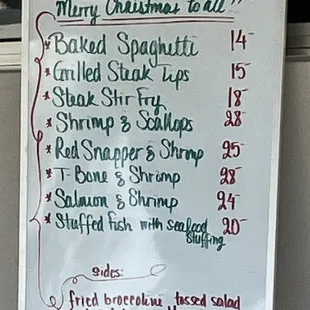 Merry Christmas to all!!
* Baked Spaghetti 14-
* Grilled Steak Tips 15-
* Steak Stir Fry 18-
* Shrimp & Scallops 28-
* Red Snapper & Shrimp 25-
* T-Bone & Shrimp 28-
* Salmon & Shrimp 24-
* Stuffed fish with seafood stuffing 20-
Sides:
fried broccoline tossed salad